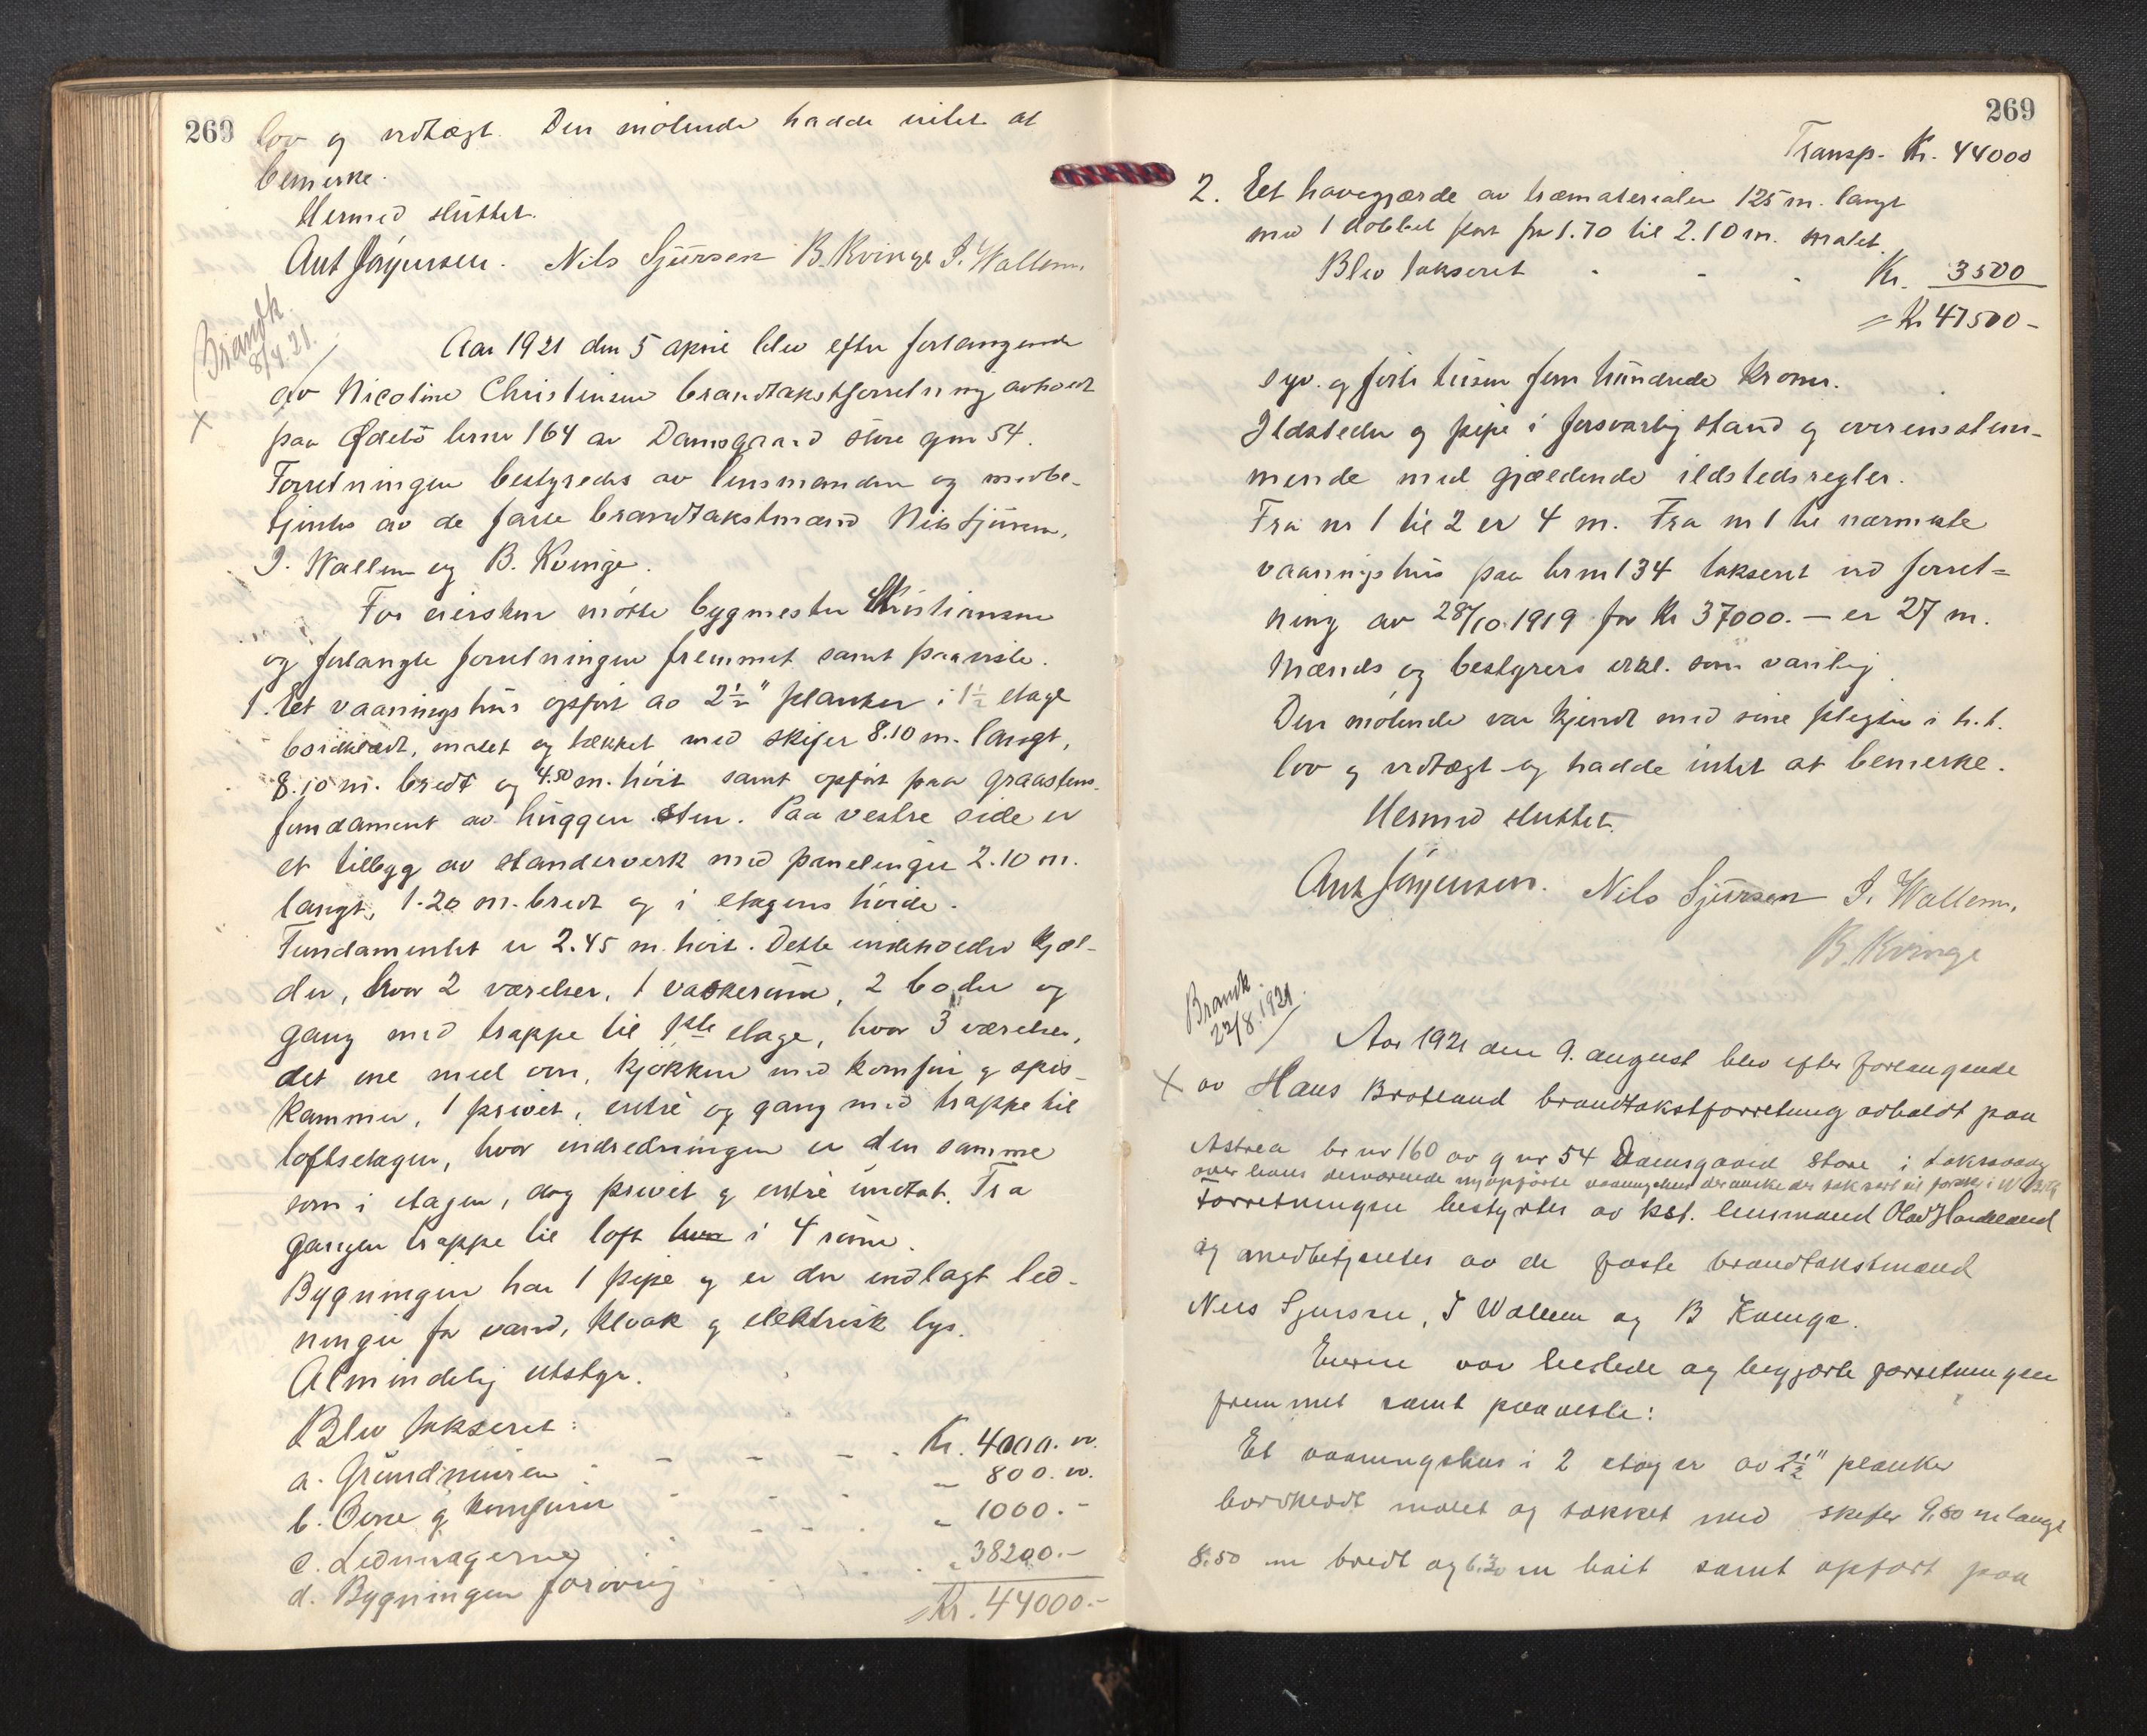 269
lov og vedtægt. Den møtende hadde intet at
bemerke.
Hermed sluttet.
Ant Jørgensen. Nils Sjursen B. Kvinge I. Wallem.
Brandk.
8/4.21.
Aar 1921 den 5 april blev efter forlangende
av Nicoline Christensen brandtakstforretning avholdt
paa Ødebø brnr 164 av Damsgaard store gnr 54.
Forretningen bestyredes av lensmanden og medbe-
tjentes av de faste brandtakstmænd Nils Sjursen,
I. Wallem og B. Kvinge.
For eiersken møtte bygmester Kristiansen
og forlangte forretningen fremmet samt paaviste.
1. Et vaaningshus opført av 2½" planker i 1½ etage
bordklædt, malet og tækket med skifer 8.10 m. langt,
8.10 m. bredt og 4.50 m. høit samt opført paa graastens-
fundament av huggen sten. Paa vestre side er
et tilbygg av standerverk med panelinger 2.10 m.
langt, 1.20 m. bredt og i etagens høide.
Fundamentet er 2.45 m. høit. Dette indeholder kjæl-
der, hvor 2 værelser, 1 vaskerum, 2 boder og
gang med trappe til 1ste etage, hvor 3 værelser,
det ene med ovn, kjøkken med komfur og spis-
kammer, 1 privet, entré og gang med trappe til
loftsetagen, hvor indredningen er den samme
som i etagen, dog privet og entré undtat. Fra
gangen trappe til loft hvor i 4 rum.
Bygningen har 1 pipe og er der indlagt led-
ninger for vand, kloak og elektrisk lys.
Almindelig utstyr.
Blev takseret:
a. Grundmuren - - - Kr. 4000.00.
b. Ovne og komfurer - - - 800.00.
c. Ledningerne - - - 1000.-
d. Bygningen forøvrig - - - 38200.-
Kr. 44000.-
269
Transp. Kr. 44000
2. Et havegjærde av træmaterialer 125 m. langt
med 1 dobbel port fra 1.70 til 2.10 m. malet
Blev takseret - - - Kr. 3500
Kr 47500-
syv og førti tusen fem hundrede kroner.
Ildsteder og pipe i forsvarlig stand og overensstem-
mende med gjældende ildstedsregler.
Fra nr 1 til 2 er 4 m. Fra nr 1 til nærmeste
vaaningshus paa brnr 134 takseret ved forret-
ning av 28/10.1919 for Kr 37000.- er 27 m.
Mænds og bestyrers erkl. som vanlig.
Den møtende var kjendt med sine plegter i h.t.
lov og vedtægt og hadde intet at bemerke.
Hermed sluttet.
Ant Jørgensen. Nils Sjursen I. Wallem.
B. Kvinge
Brandk.
22/8.1921.
Aar 1921 den 9. august blev efter forlangende
av Hans Brotland brandtakstforretning avholdt paa
Astrea br nr 160 av g nr 54 Damsgaard store i Laksevaag
over hans derværende nyopførte vaaningshus
Forretningen bestyrtes av kst. lensmand Olav Hordeland
og medbetjentes av de faste brandtakstmænd
Nils Sjursen, I Wallem og B Kvinge.
Eieren var tilstede og begjærte forretningen
fremmet samt paaviste:
Et vaaningshus i 2 etager av 2½" planker
bordklædt malet og tækket med skifer 9.60 m langt
8.50 m bredt og 6.30 m høit samt opført paa